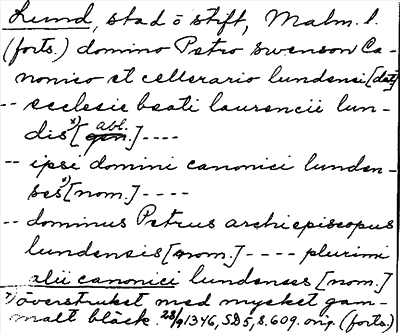 Lund, stad o stift, Malm. l.
(forts.) domino Petro Swenson Ca-
nonico et cellerario lundensi [dat]
-- ecclesie beati laurencii lun-
dis x) [gen. abl.] ----
-- ipsi domini canonici lunden-
ses x) [nom.] ----
-- dominus Petrus archiepiscopus
lundensis [nom.] ---- plurimi
alii canonici lundenses [nom.]
x) överstruket med mycket gam-
malt bläck. 28/9 1346, SD5, s. 609. orig. (forts.)